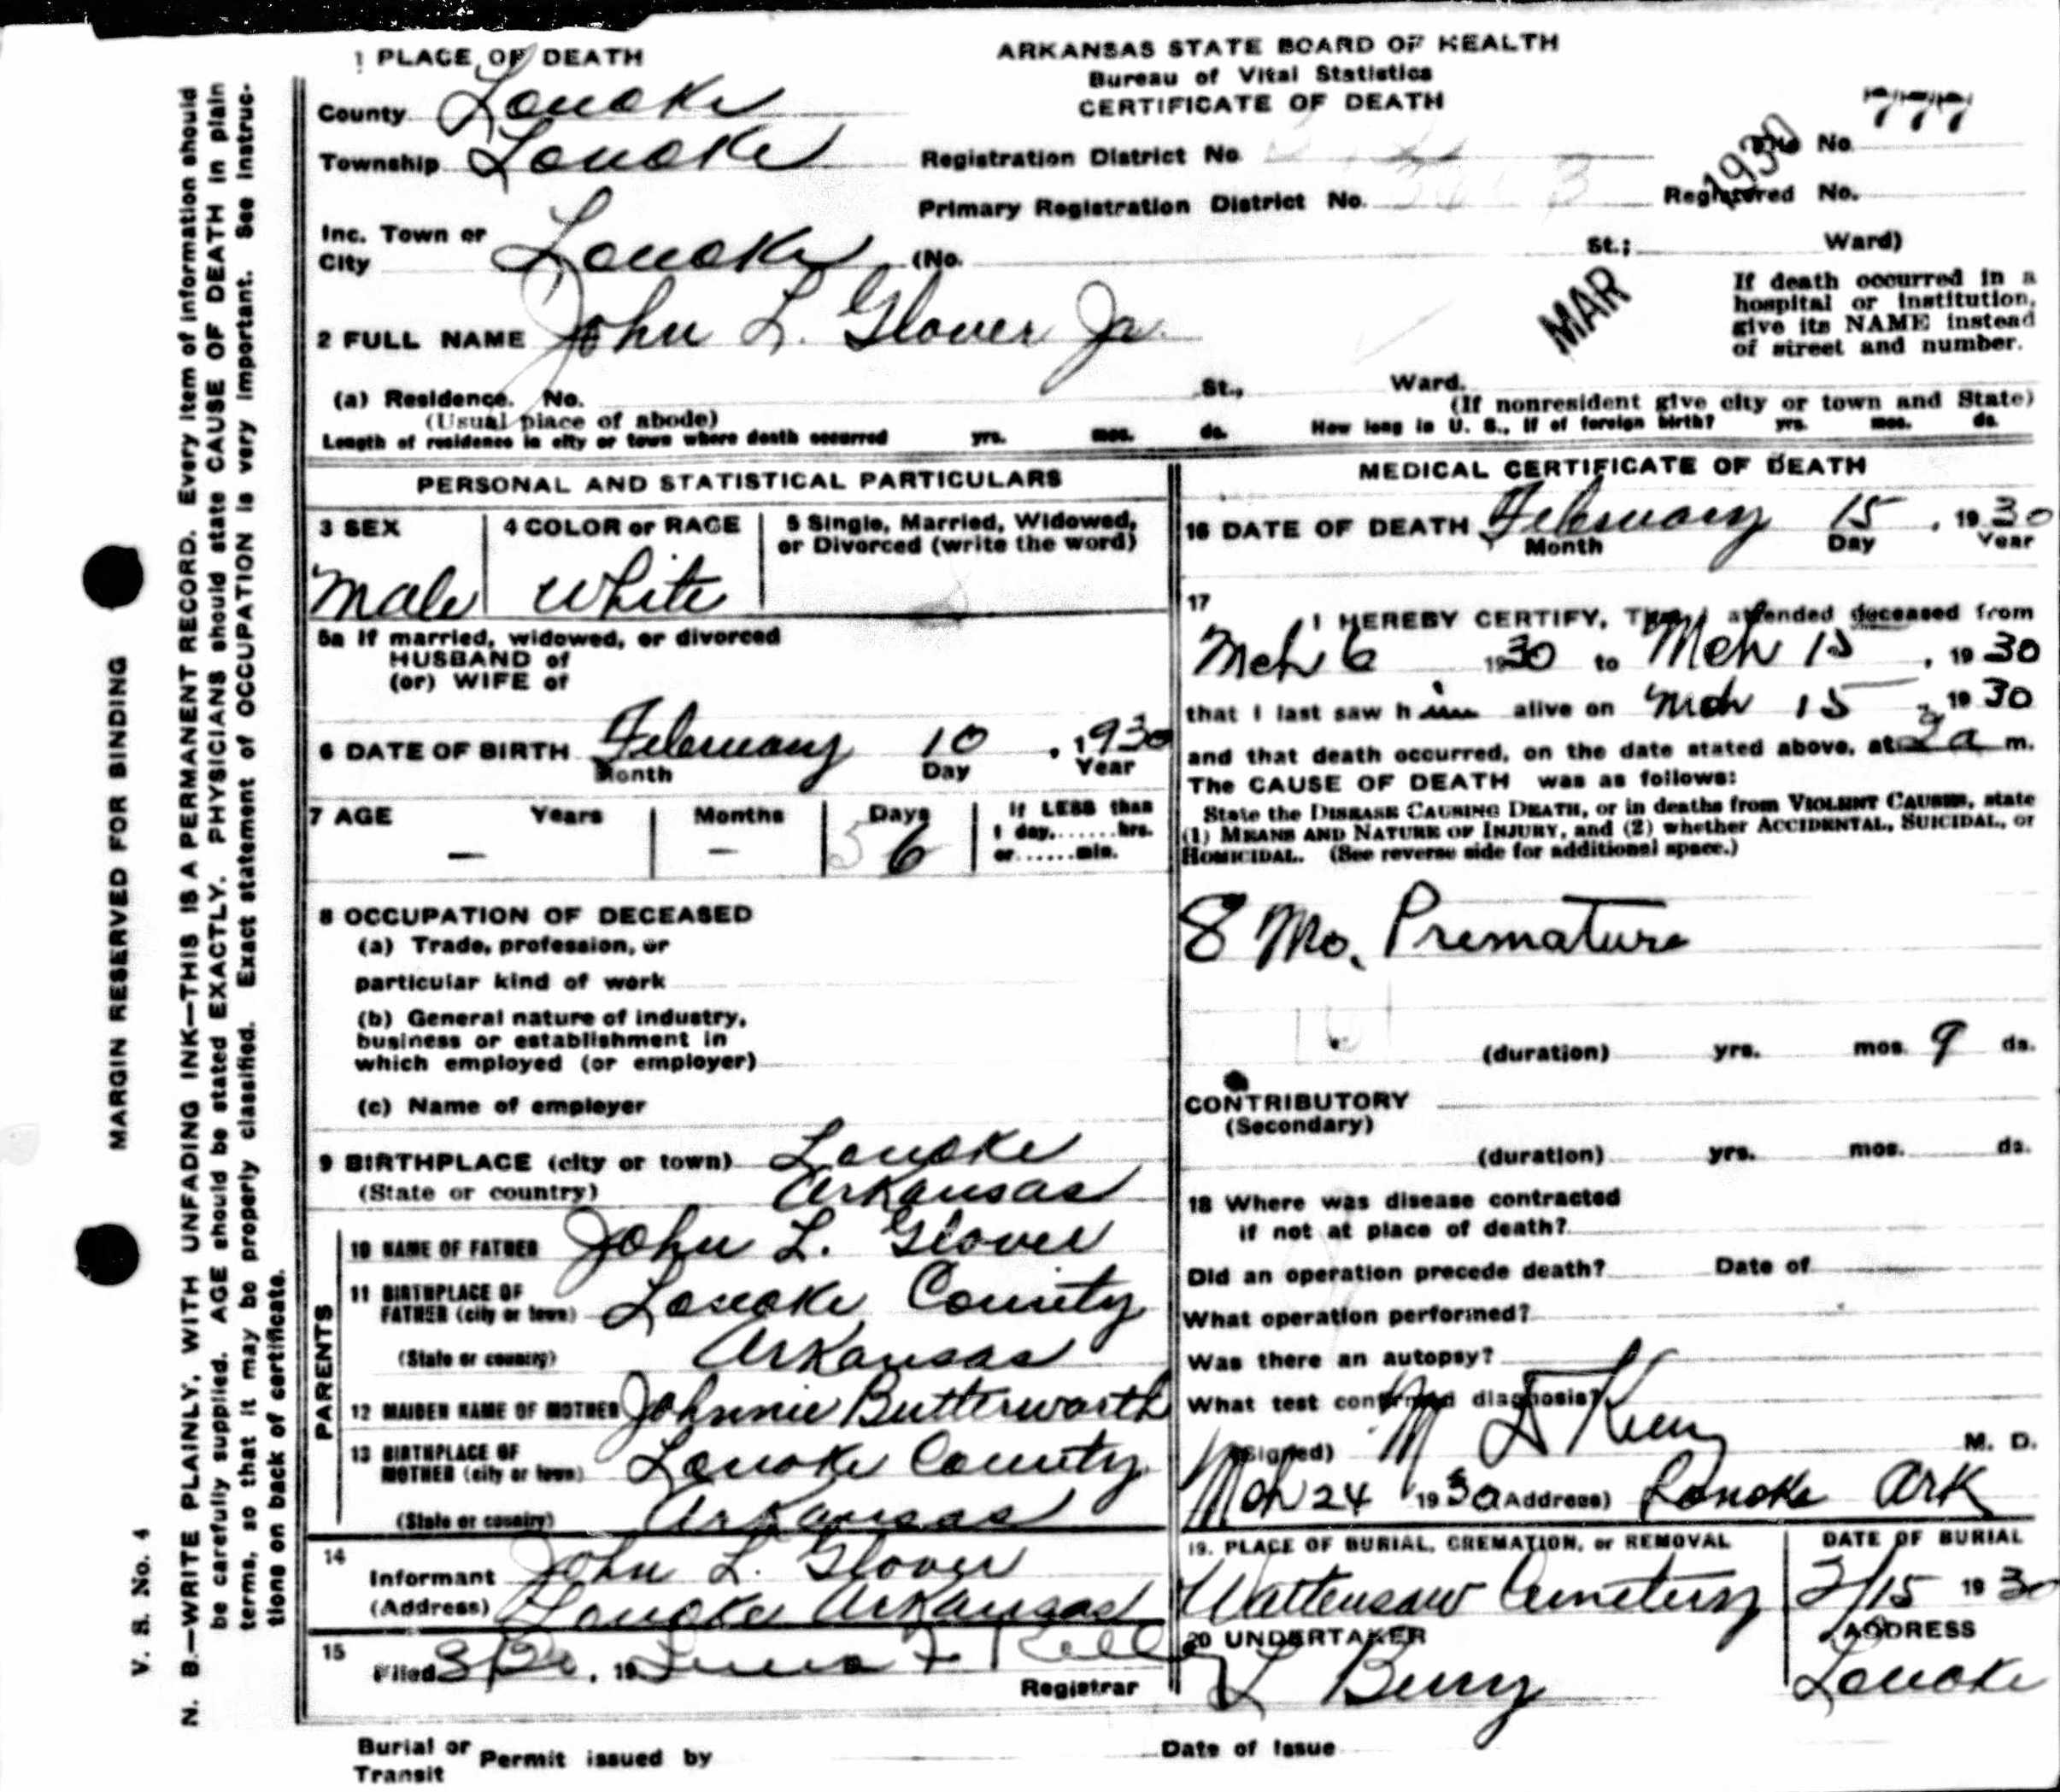 1 PLACE OF DEATH
ARKANSAS STATE BOARD OF HEALTH
Bureau of Vital Statistics
CERTIFICATE OF DEATH
County Lonoke
Township Lonoke
Registration District No
File No 777
1930
Primary Registration District No.
Registered No.
Inc. Town or City Lonoke (No. St.; Ward)
MAR
If death occurred in a
hospital or institution,
give its NAME instead
of street and number.
2 FULL NAME John L. Glover Jr.
(a) Residence. No. St., Ward.
(Usual place of abode) (If nonresident give city or town and State)
Length of residence in city or town where death occurred yrs. mos. ds. How long in U. S., if of foreign birth? yrs. mos. ds.
PERSONAL AND STATISTICAL PARTICULARS
3 SEX 4 COLOR or RACE 5 Single, Married, Widowed,
or Divorced (write the word)
Male White
5a If married, widowed, or divorced
HUSBAND of
(or) WIFE of
6 DATE OF BIRTH February 10 , 1930
Month Day Year
7 AGE Years Months Days If LESS than
1 day,......hrs.
or......min.
— — 5 6
8 OCCUPATION OF DECEASED
(a) Trade, profession, or
particular kind of work
(b) General nature of industry,
business or establishment in
which employed (or employer)
(c) Name of employer
9 BIRTHPLACE (city or town) Lonoke
(State or country) Arkansas
PARENTS
10 NAME OF FATHER John L. Glover
11 BIRTHPLACE OF
FATHER (city or town) Lonoke County
(State or country) Arkansas
12 MAIDEN NAME OF MOTHER Johnnie Butterworth
13 BIRTHPLACE OF
MOTHER (city or town) Lonoke County
(State or country) Arkansas
14
Informant John L. Glover
(Address) Lonoke Arkansas
15
Filed , 19
Registrar
MEDICAL CERTIFICATE OF DEATH
16 DATE OF DEATH February 15 , 1930
Month Day Year
17
I HEREBY CERTIFY, That I attended deceased from
Mch 6 1930 to Mch 15 , 1930
that I last saw him alive on Mch 15 , 1930
and that death occurred, on the date stated above, at 2 a m.
The CAUSE OF DEATH was as follows:
State the DISEASE CAUSING DEATH, or in deaths from VIOLENT CAUSES, state
(1) MEANS AND NATURE OF INJURY, and (2) whether ACCIDENTAL, SUICIDAL, or
HOMICIDAL. (See reverse side for additional space.)
8 Mo. Premature
(duration) yrs. mos. 9 ds.
CONTRIBUTORY
(Secondary)
(duration) yrs. mos. ds.
18 Where was disease contracted
if not at place of death?
Did an operation precede death? Date of
What operation performed?
Was there an autopsy?
What test confirmed diagnosis?
(Signed) M. D.
Mch 24 1930 (Address) Lonoke Ark
19. PLACE OF BURIAL, CREMATION, or REMOVAL DATE OF BURIAL
Wattensaw Cemetery 2/15 1930
20 UNDERTAKER ADDRESS
L Berry Lonoke
Burial or
Transit Permit issued by Date of Issue
MARGIN RESERVED FOR BINDING
V. S. No. 4
N. B.—WRITE PLAINLY, WITH UNFADING INK—THIS IS A PERMANENT RECORD. Every item of information should
be carefully supplied. AGE should be stated EXACTLY. PHYSICIANS should state CAUSE OF DEATH in plain
terms, so that it may be properly classified. Exact statement of OCCUPATION is very important. See instruc-
tions on back of certificate.